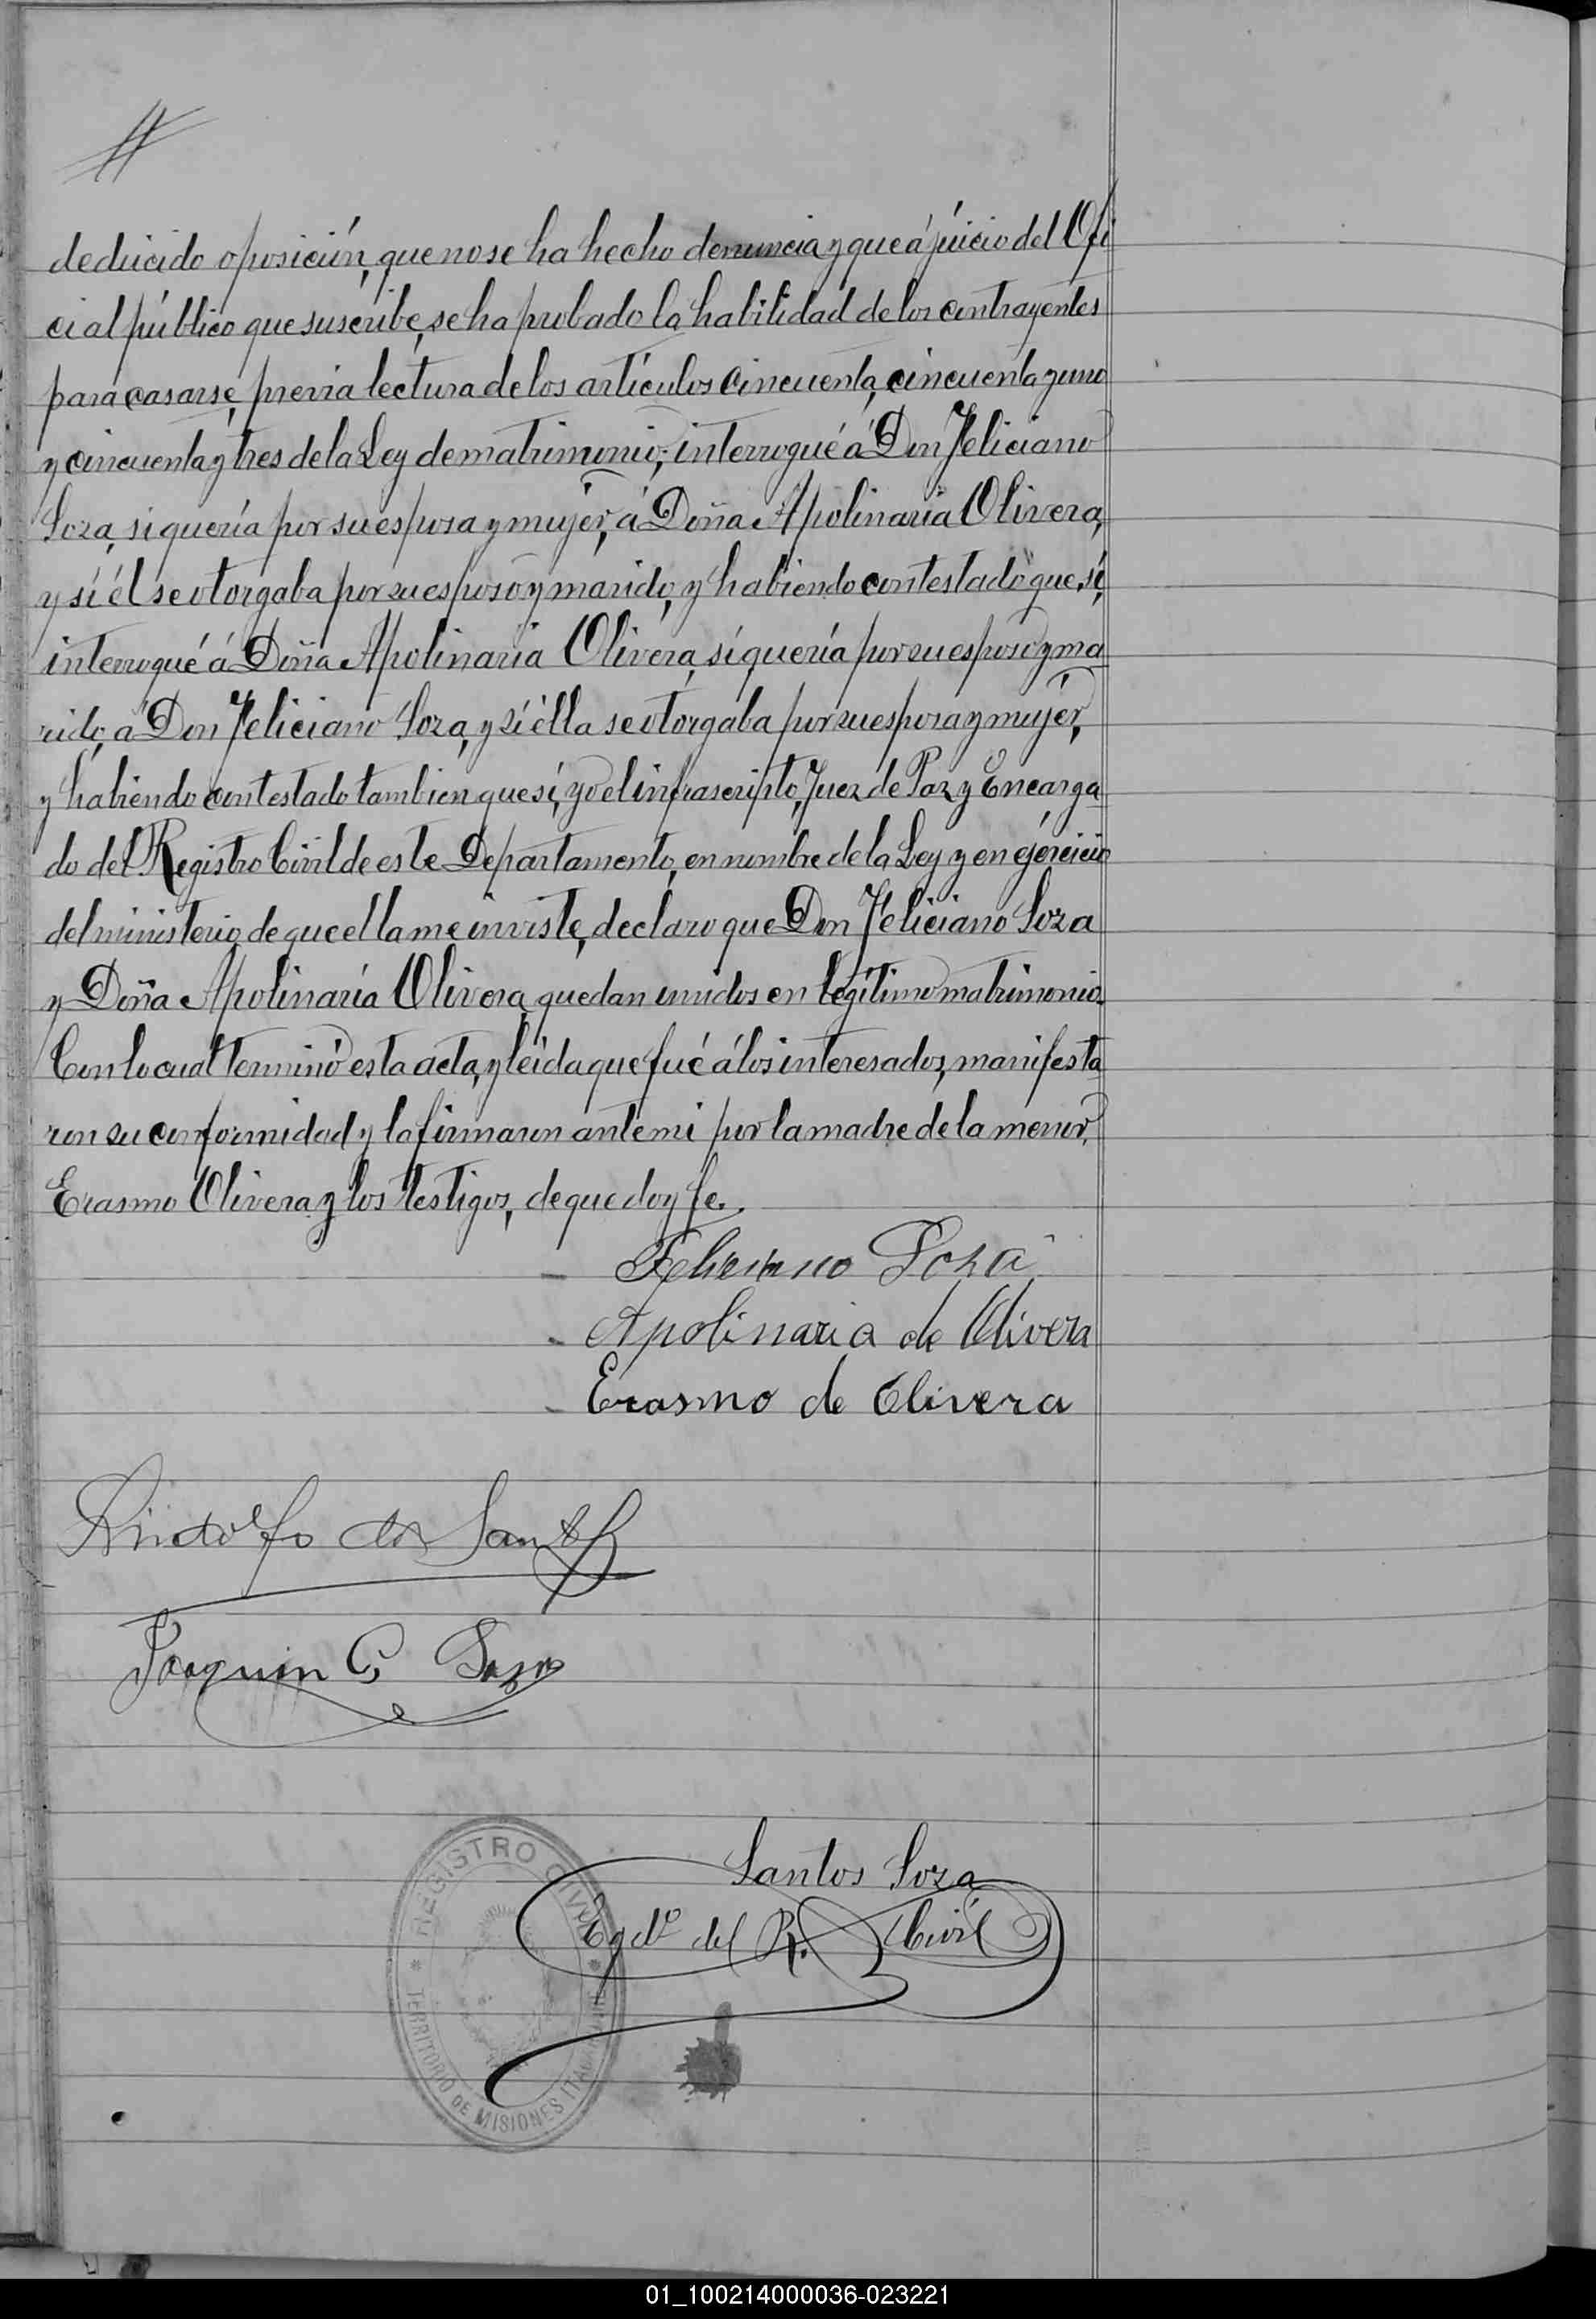 deducido oposición, que no se ha hecho denuncia y que á juicio del Ofi
cial público que suscribe, se ha probado la habilidad de los contrayentes
para casarse, previa lectura de los artículos cincuenta, cincuenta y uno
y cincuenta y tres de la Ley de matrimonio; interrogué á Don Feliciano
Soza, si quería por su esposa y mujer, á Doña Apolinaria Olivera,
y si él se otorgaba por su esposo y marido, y habiendo contestado que, sí,
interrogué á Doña Apolinaria Olivera, si quería por su esposo y ma
rido, a Don Feliciano Soza, y si élla se otorgaba por su esposa y mujer,
y habiendo contestado tambien que sí, yo el infrascripto, Juez de Paz y Encarga
do del Registro Civil de este Departamento, en nombre de la Ley y en ejercicio
del ministerio de que ella me inviste, declaro que Don Feliciano Soza
y Doña Apolinaria Olivera, quedan unidos en legítimo matrimonio.
Con lo cual terminó esta acta, y leida que fué á los interesados, manifesta
ron su conformidad y la firmaron ante mi por la madre de la menor,
Erasmo Olivera y los testigos, de que doy fe.
Feliciano Soza
Apolinaria de Olivera
Erasmo de Olivera
Lindolfo dos Santos
Joaquin G Soza
Santos Soza
Egdo del R. Civil
REGISTRO CIVIL
TERRITORIO DE MISIONES
01_100214000036-023221